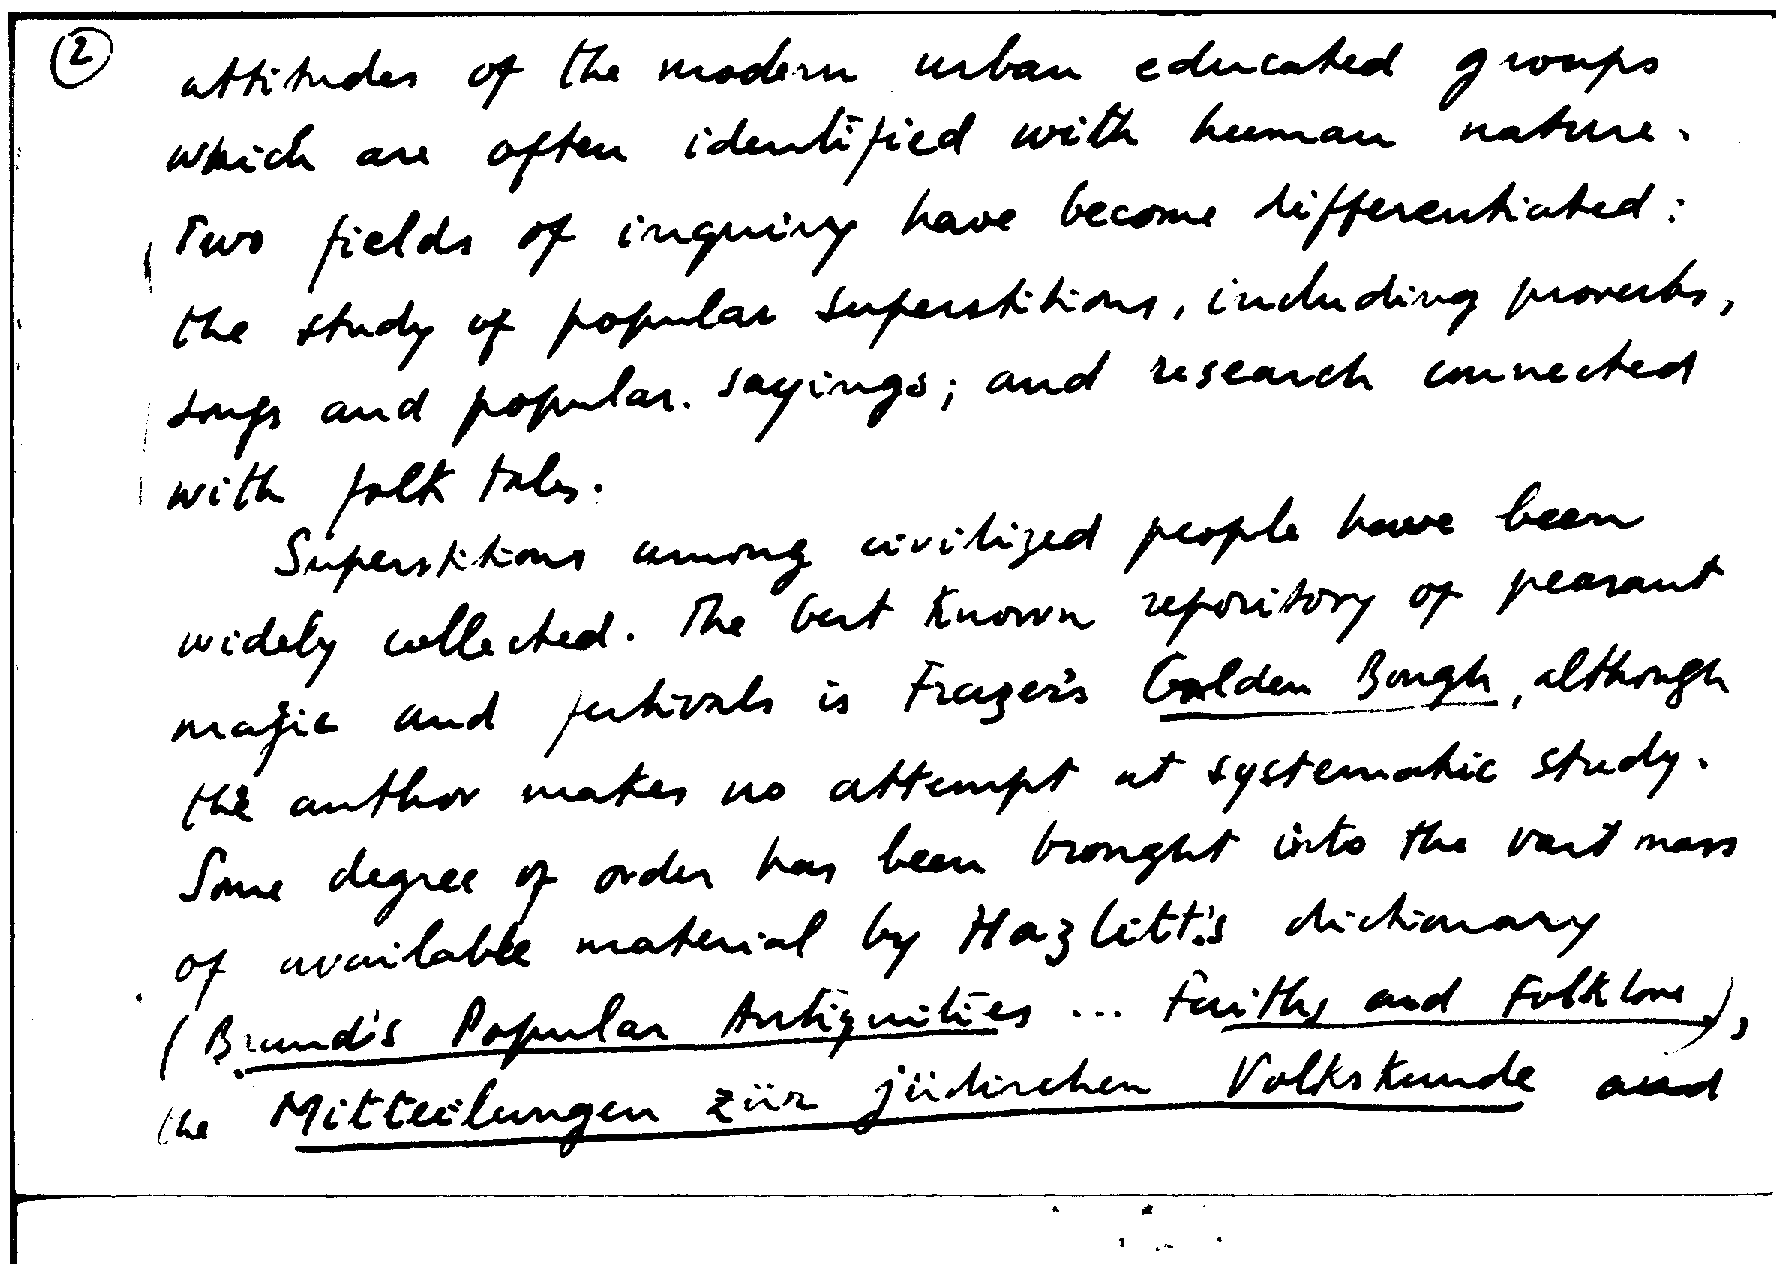 2
attitudes of the modern urban educated groups
which are often identified with human nature.
Two fields of inquiry have become differentiated:
the study of popular superstitions, including proverbs,
songs and popular. sayings; and research connected
with folk tales.
Superstitions among civilized people have been
widely collected. The best known repository of peasant
magic and festivals is Frazer's Golden Bough, although
the author makes no attempt at systematic study.
Some degree of order has been brought into the vast mass
of available material by Hazlitt's dictionary
(Brand's Popular Antiquities ... Faiths and Folklore),
the Mitteilungen zür jüdischen Volkskunde and